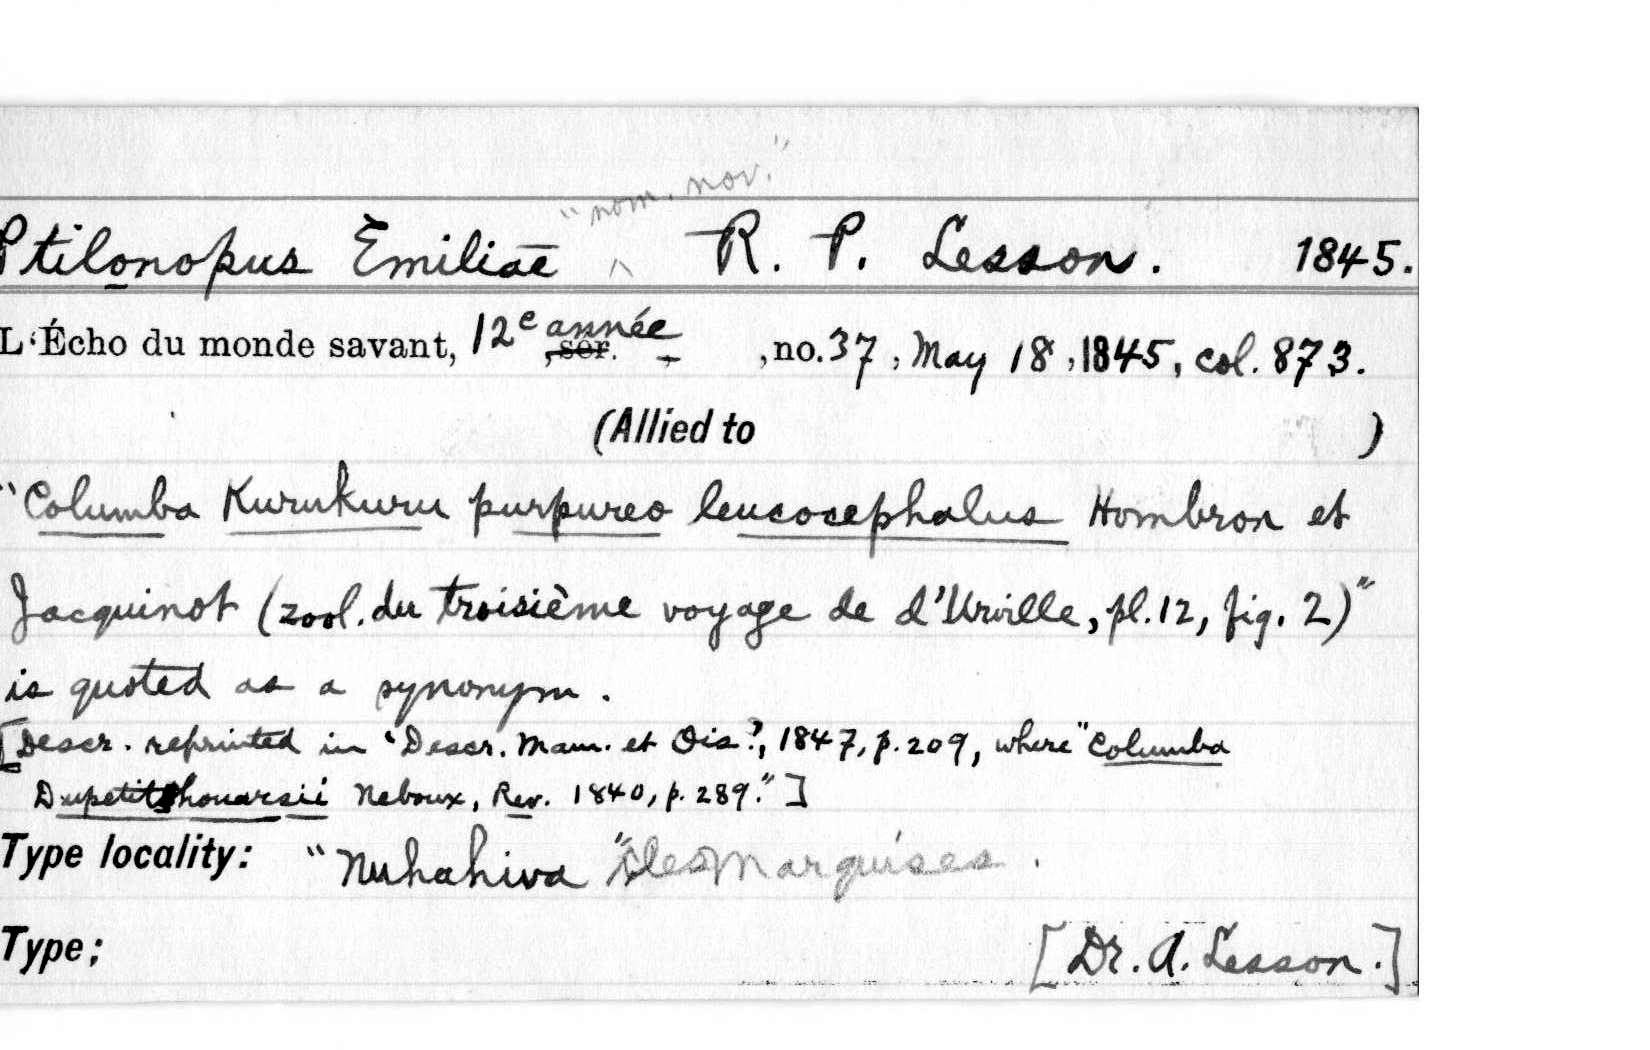 "nom. nov."
Ptilonopus Emiliae ^ R. P. Lesson. 1845.
L'Écho du monde savant, 12e année, sér. , no. 37, May 18, 1845, col. 873.
(Allied to )
"Columba Kurukuru purpureo leucocephalus Hombron et
Jacquinot (zool. du troisième voyage de d'Urville, pl. 12, fig. 2)"
is quoted as a synonym.
[Descr. reprinted in 'Descr. Mam. et Ois.', 1847, p. 209, where "Columba
Dupetitthouarsii Neboux, Rev. 1840, p. 289."]
Type locality: "Nuhahiva" iles Marquises.
Type; [Dr. A. Lesson.]